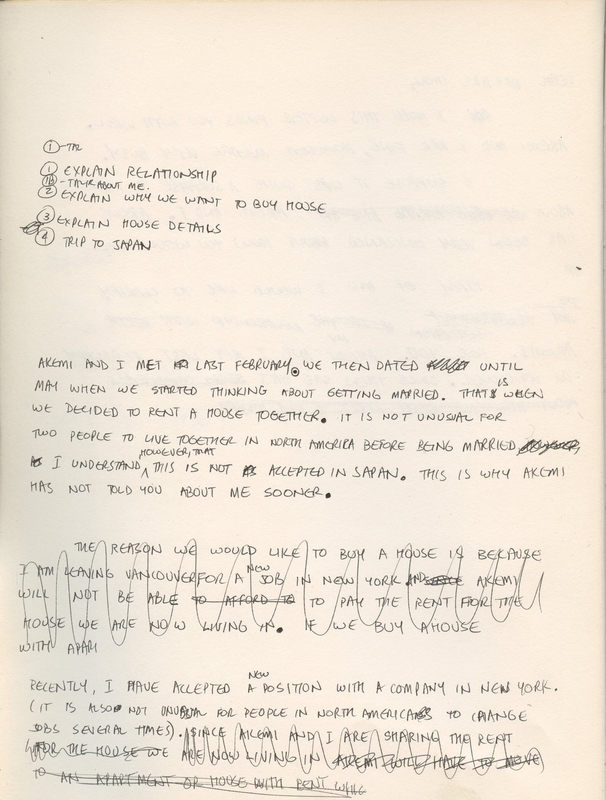 ① - TAL
① EXPLAIN RELATIONSHIP
1B - TALK ABOUT ME.
② EXPLAIN WHY WE WANT TO BUY HOUSE
③ EXPLAIN HOUSE DETAILS
④ TRIP TO JAPAN
AKEMI AND I MET LAST FEBRUARY. WE THEN DATED UNTIL
MAY WHEN WE STARTED THINKING ABOUT GETTING MARRIED. THAT'S IS WHEN
WE DECIDED TO RENT A HOUSE TOGETHER. IT IS NOT UNUSUAL FOR
TWO PEOPLE TO LIVE TOGETHER IN NORTH AMERIKA BEFORE BEING MARRIED
HOWEVER, THAT
I UNDERSTAND THIS IS NOT ACCEPTED IN JAPAN. THIS IS WHY AKEMI
HAS NOT TOLD YOU ABOUT ME SOONER.
THE REASON WE WOULD LIKE TO BUY A HOUSE IS BECAUSE
I AM LEAVING VANCOUVER FOR A NEW JOB IN NEW YORK AND AKEMI
WILL NOT BE ABLE TO AFFORD TO TO PAY THE RENT FOR THE
HOUSE WE ARE NOW LIVING IN. IF WE BUY A HOUSE
WITH APARI
RECENTLY, I HAVE ACCEPTED A NEW POSITION WITH A COMPANY IN NEW YORK.
(IT IS ALSO NOT UNUSUAL FOR PEOPLE IN NORTH AMERICA TO CHANGE
JOBS SEVERAL TIMES). SINCE AKEMI AND I ARE SHARING THE RENT
FOR THE HOUSE WE ARE NOW LIVING IN AKEMI WOULD HAVE TO MOVE
TO AN APARTMENT OR HOUSE WITH RENT WHIC